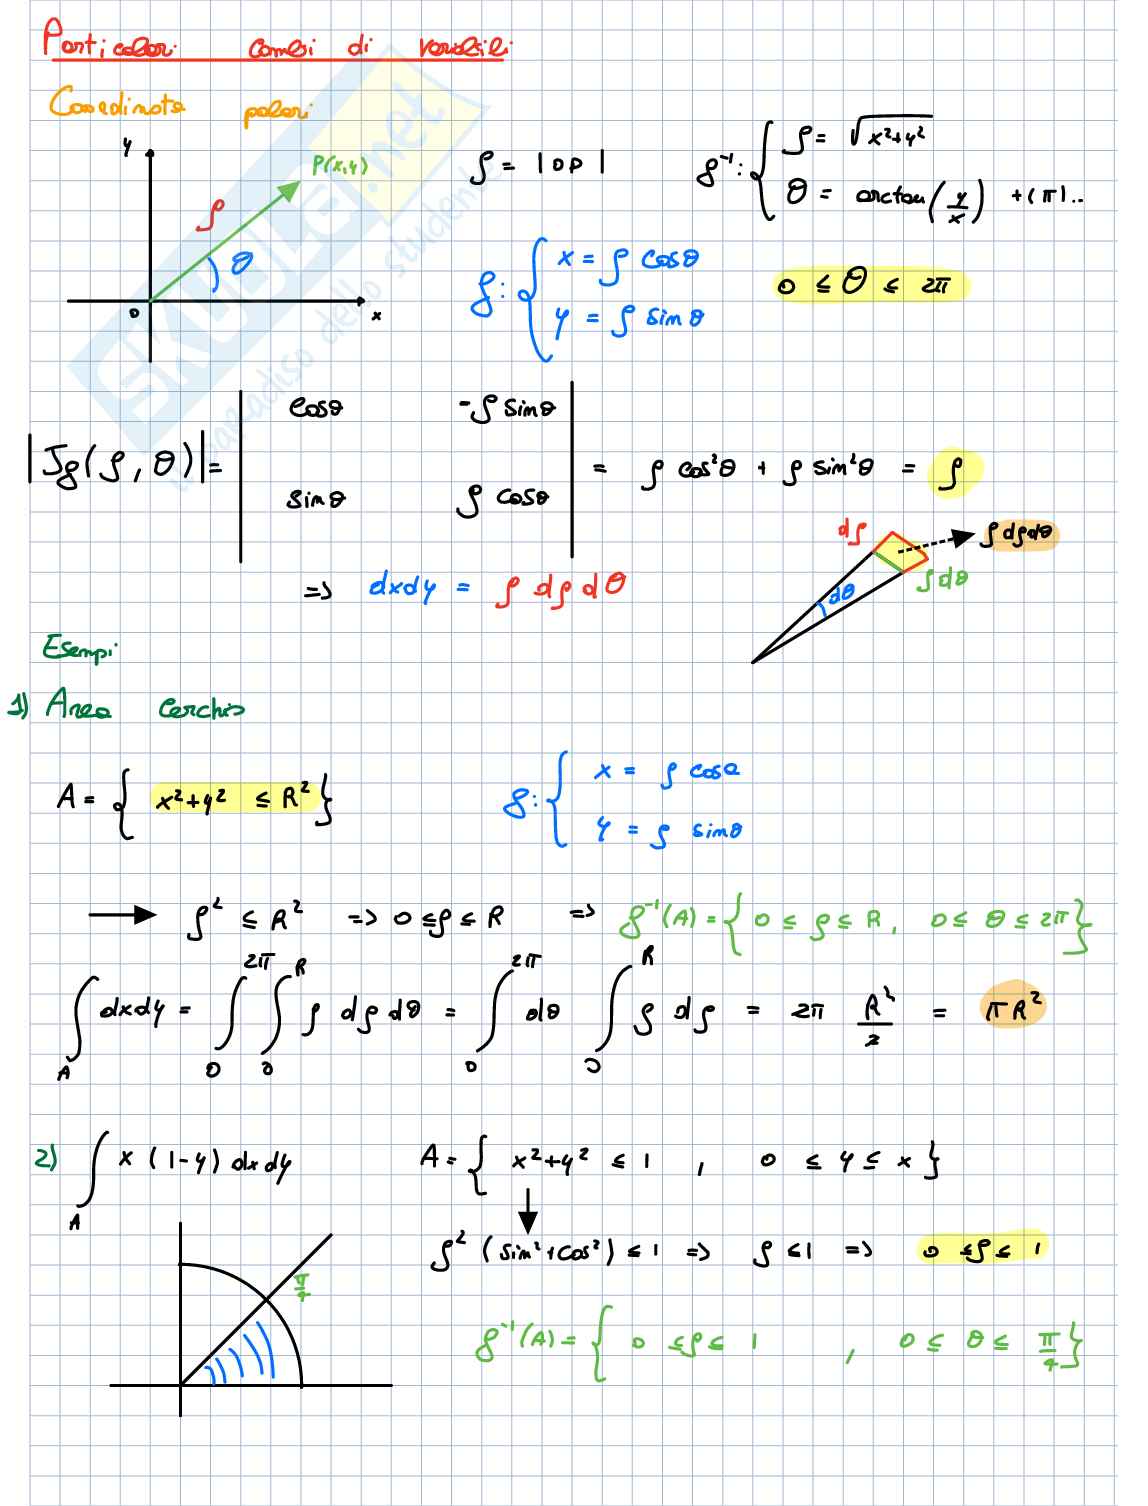 Particolari cambi di variabili
Coordinate polari
y
P(x,y)
ρ
θ
0
x
ρ = |OP|
g⁻¹: { ρ = √(x²+y²)
θ = arctan(y/x) +(π)..
g: { x = ρ cosθ
y = ρ sinθ
0 ≤ θ ≤ 2π
|Jg(ρ, θ)| = | cosθ -ρ sinθ
sinθ ρ cosθ | = ρ cos²θ + ρ sin²θ = ρ
=> dxdy = ρ dρ dθ
dρ
ρ dρ dθ
ρ dθ
dθ
Esempi
1) Area cerchio
A = { x²+y² ≤ R² }
g: { x = ρ cosθ
y = ρ sinθ
→ ρ² ≤ R² => 0 ≤ ρ ≤ R => g⁻¹(A) = { 0 ≤ ρ ≤ R, 0 ≤ θ ≤ 2π }
∫_A dxdy = ∫_0^2π ∫_0^R ρ dρ dθ = ∫_0^2π dθ ∫_0^R ρ dρ = 2π R²/2 = πR²
2) ∫_A x (1-y) dxdy A = { x²+y² ≤ 1 , 0 ≤ y ≤ x }
ρ² (sin²+cos²) ≤ 1 => ρ ≤ 1 => 0 ≤ ρ ≤ 1
π/4
g⁻¹(A) = { 0 ≤ ρ ≤ 1 , 0 ≤ θ ≤ π/4 }
SKUOLA.net
il paradiso dello studente